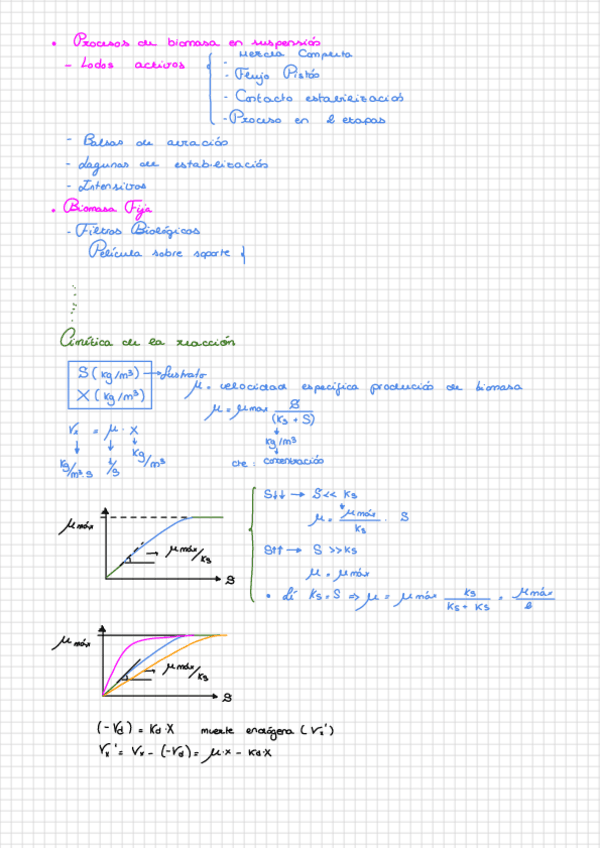 • Procesos de biomasa en suspensión
- Lodos activos { - Mezcla Completa
- Flujo Pistón
- Contacto estabilización
- Proceso en 2 etapas
- Balsas de aireación
- Lagunas de estabilización
- Intensivos
• Biomasa Fija
- Filtros Biológicos
Película sobre soporte {
Cinética de la reacción
S (kg/m³) → Sustrato
X (kg/m³)
μ = velocidad específica producción de biomasa
μ = μmax S/(Ks + S)
rx = μ · X
kg/m³·s 1/s kg/m³
kg/m³
cte : concentración
S↓↓ → S << Ks
μ = μmáx/Ks · S
S↑↑ → S >> Ks
μ = μmáx
• Si Ks = S => μ = μmáx Ks/(Ks + Ks) = μmáx/2
μmáx
μmáx/Ks
S
μmáx
μmáx/Ks
S
(-rd) = Kd·X muerte endógena (rx')
rx' = rx - (-rd) = μ·x - Kd·X